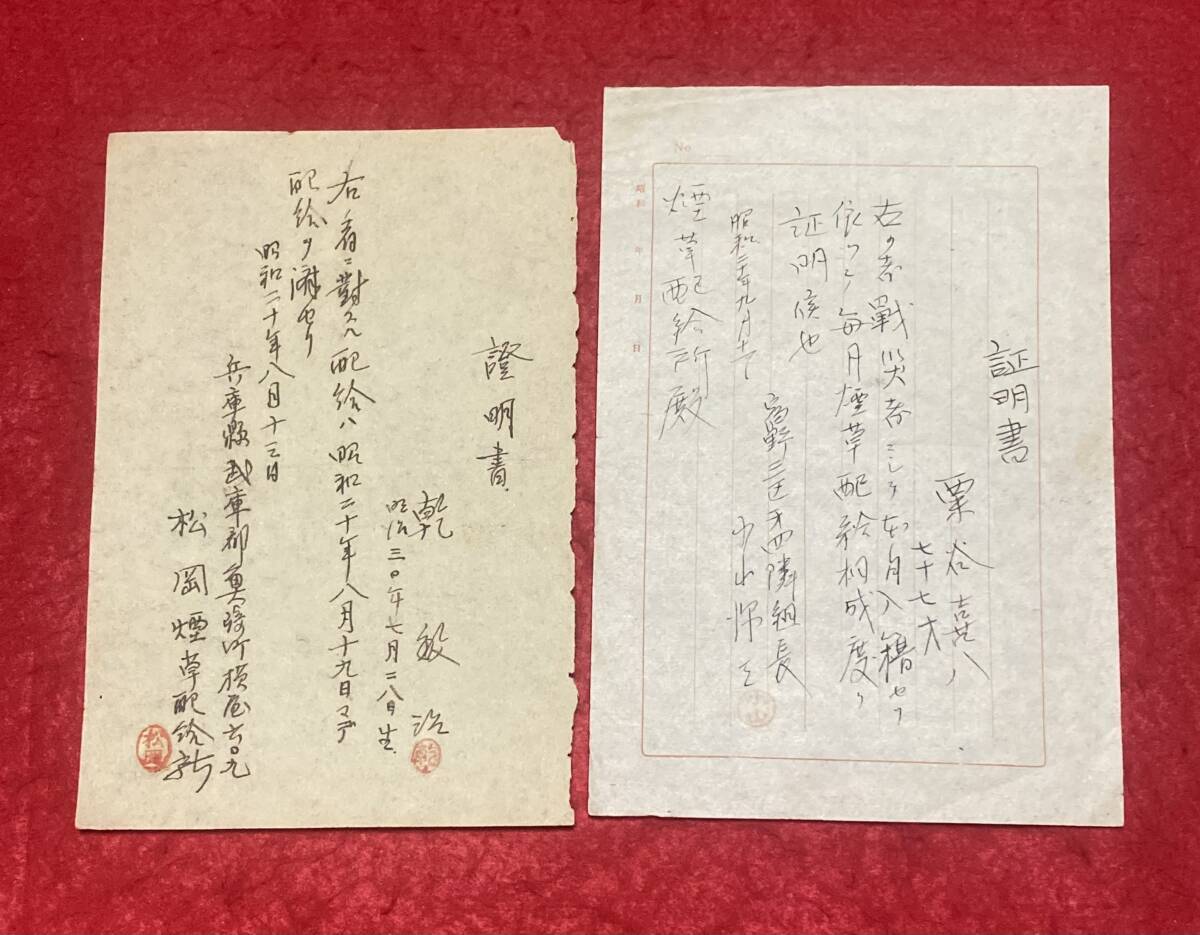 証明書
栗谷喜八
七十七才
右ノ者戦災者ニシテ本月入籍セリ
依ツテ毎月煙草配給相成度ク
証明候也
昭和二十年九月十
三区 隣組長
煙草配給所殿
No.
昭和 年 月 日
證明書
乾
明治三〇年七月二八日生
右ノ者ニ對スル配給ハ昭和二十年八月十九日マデ
配給ヲ済セリ
昭和二十年八月十三日
兵庫縣武庫郡魚崎町横屋
松岡煙草配給所
松岡